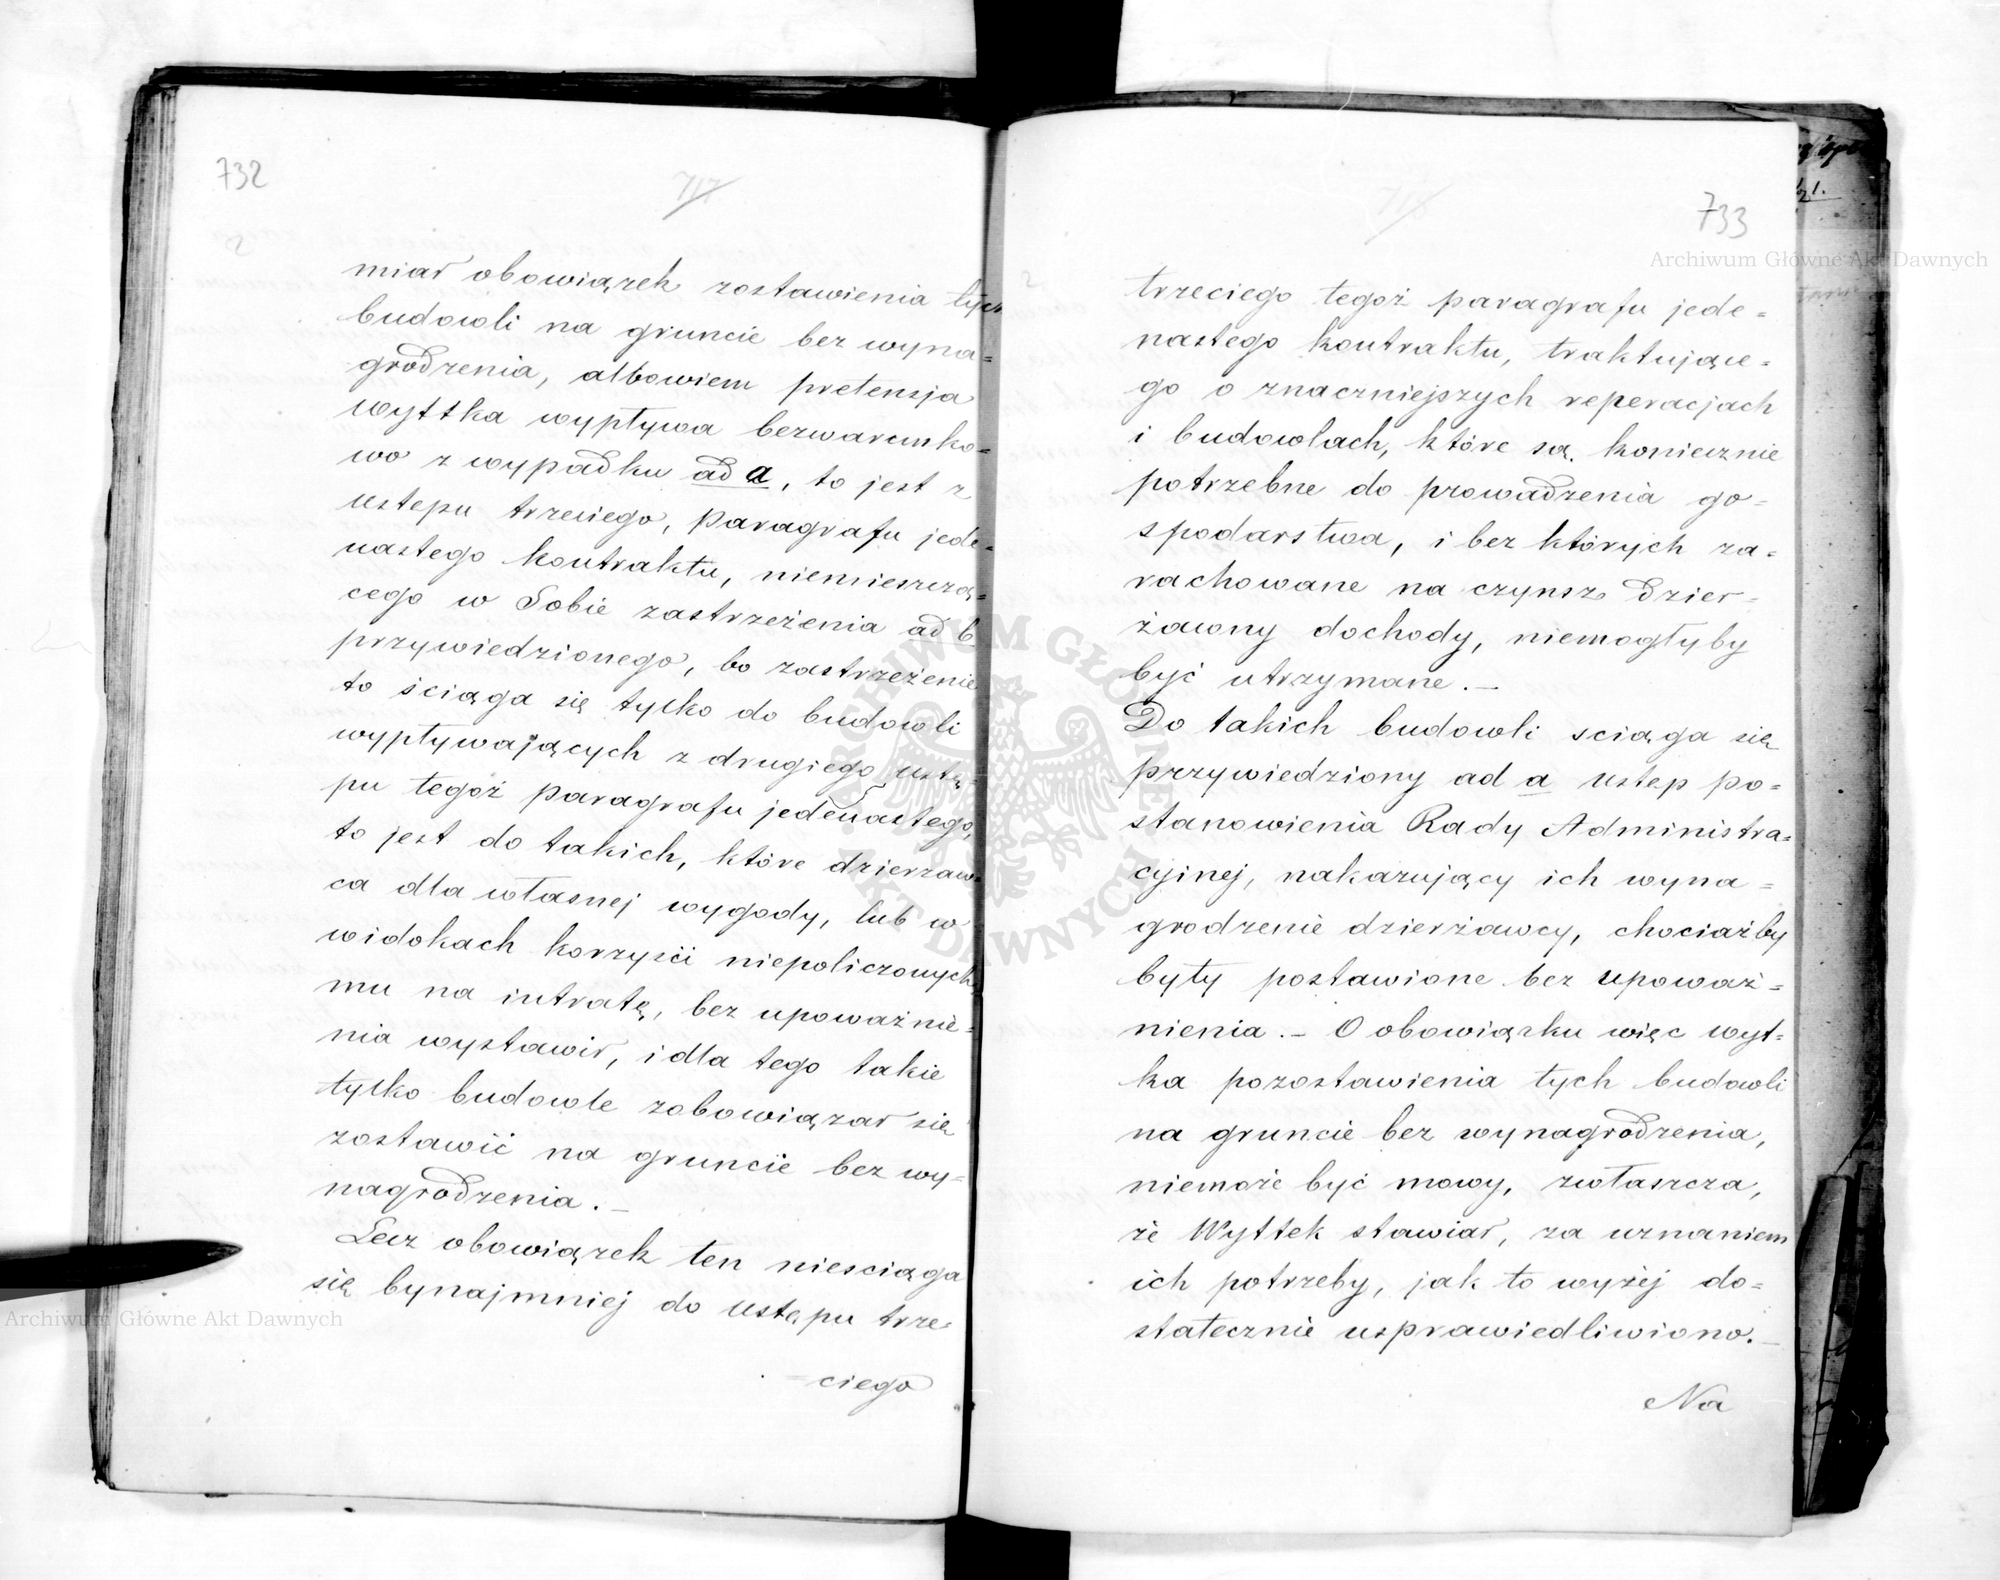 732
717
miał obowiązek zostawienia tych
budowli na gruncie bez wyna=
grodzenia, albowiem pretensja
Wyttka wypływa bezwarunko=
wo z wypadku ad a, to jest z
ustępu trzeciego, paragrafu jede=
nastego kontraktu, niemieszczą=
cego w Sobie zastrzeżenia ad b
przywiedzionego, bo zastrzeżenie
to ściąga się tylko do budowli
wypływających z drugiego ustę=
pu tegoż paragrafu jedenastego,
to jest do takich, które dzierżaw=
ca dla własnej wygody, lub w
widokach korzyści niepoliczonych
mu na intratę, bez upoważnie=
nia wystawił, i dla tego takie
tylko budowle zobowiązał się
zostawić na gruncie bez wy=
nagrodzenia.—
Lecz obowiązek ten niesciąga
się bynajmniej do ustępu trze=
=ciego
733
trzeciego tegoż paragrafu jede=
nastego kontraktu, traktujące=
go o znaczniejszych reperacjach
i budowlach, które są koniecznie
potrzebne do prowadzenia go=
spodarstwa, i bez których za=
rachowane na czynsz dzier=
żawny dochody, niemogłyby
być utrzymane.—
Do takich budowli sciąga się
przywiedziony ad a ustęp po=
stanowienia Rady Administra=
cyjnej, nakazujący ich wyna=
grodzenie dzierżawcy, chociażby
były postawione bez upoważ=
nienia.— O obowiązku więc Wyt=
ka pozostawienia tych budowli
na gruncie bez wynagrodzenia,
niemoże być mowy, zwłaszcza,
że Wyttek stawiał, za uznaniem
ich potrzeby, jak to wyżej do=
statecznie usprawiedliwiono.—
Na
Archiwum Główne Akt Dawnych
Archiwum Główne Akt Dawnych
ARCHIWUM GŁÓWNE
AKT DAWNYCH